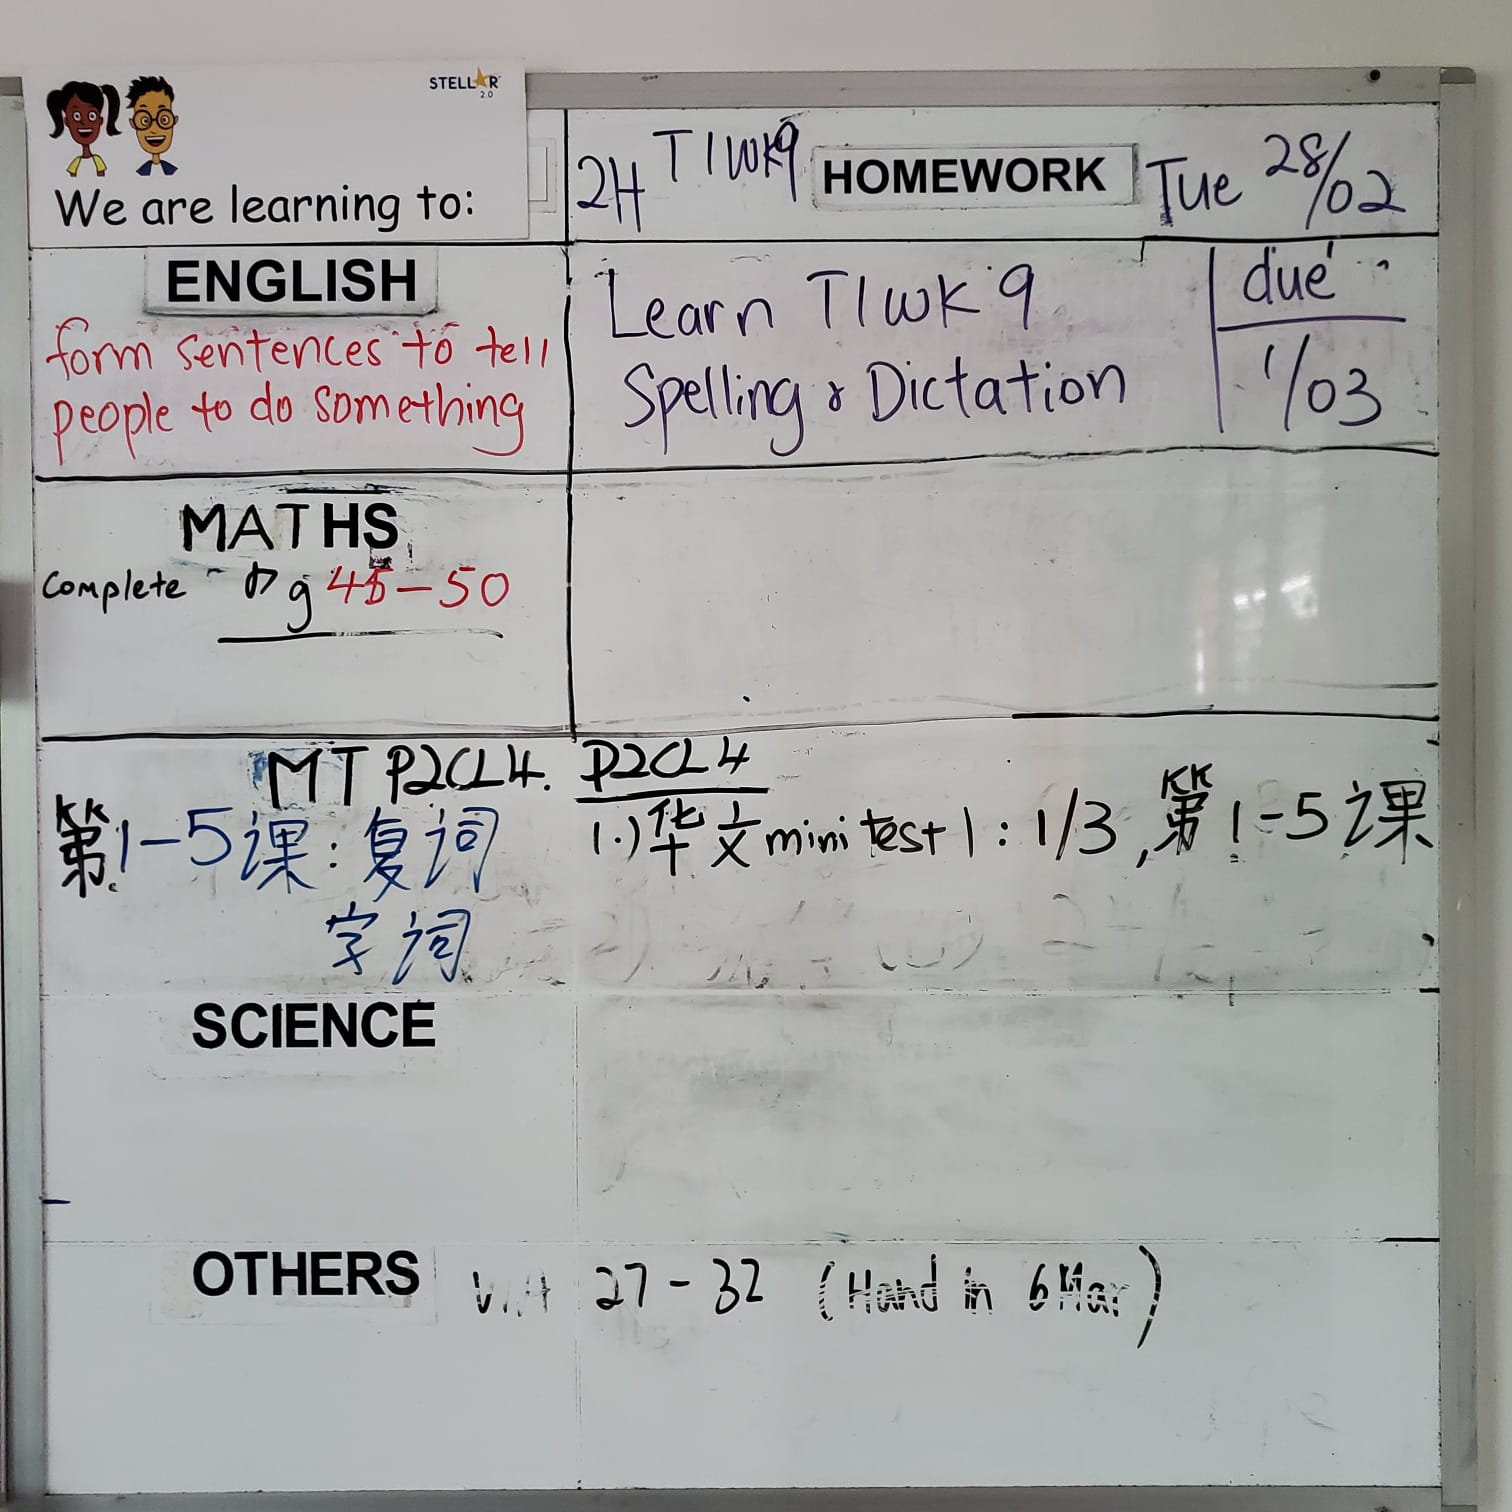 STELLAR
2.0
We are learning to:
2H T1WK9 HOMEWORK Tue 28/02
ENGLISH
form sentences to tell
people to do something
Learn T1WK9
Spelling & Dictation
due
1/03
MATHS
Complete pg 45-50
MT P2CL4.
第1-5课:复词
字词
P2CL4
1.) 华文 mini test 1: 1/3, 第1-5课
SCIENCE
OTHERS
27-32 (Hand in 6 Mar)